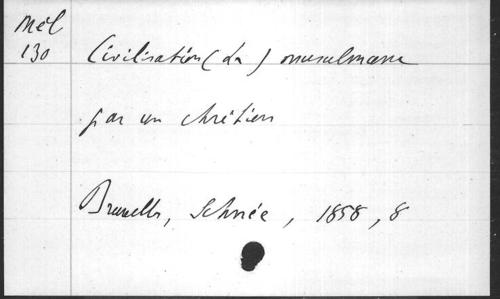 Mél
130
Civilisation (La) musulmane
par un chrétien
Bruxelles, Schnée, 1858, 8